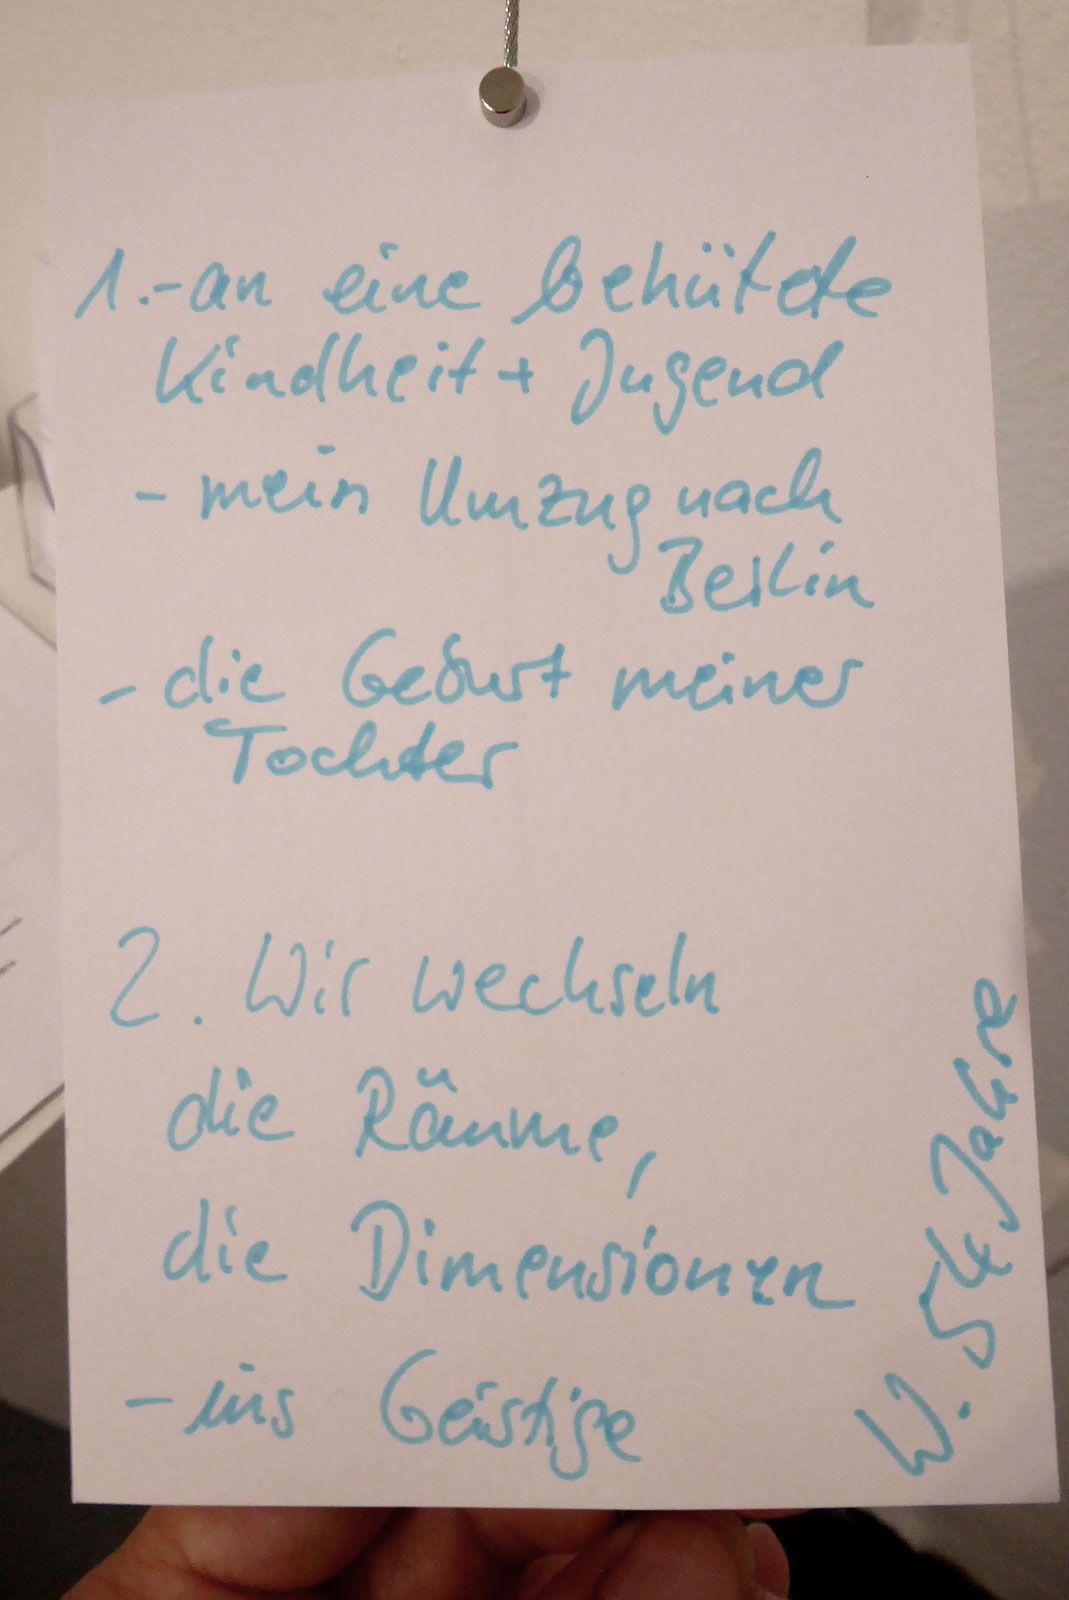 1.- an eine behütete
Kindheit + Jugend
- mein Umzug nach
Berlin
- die Geburt meiner
Tochter
2. Wir wechseln
die Räume,
die Dimensionen
- ins Geistige
W. 54 Jahre